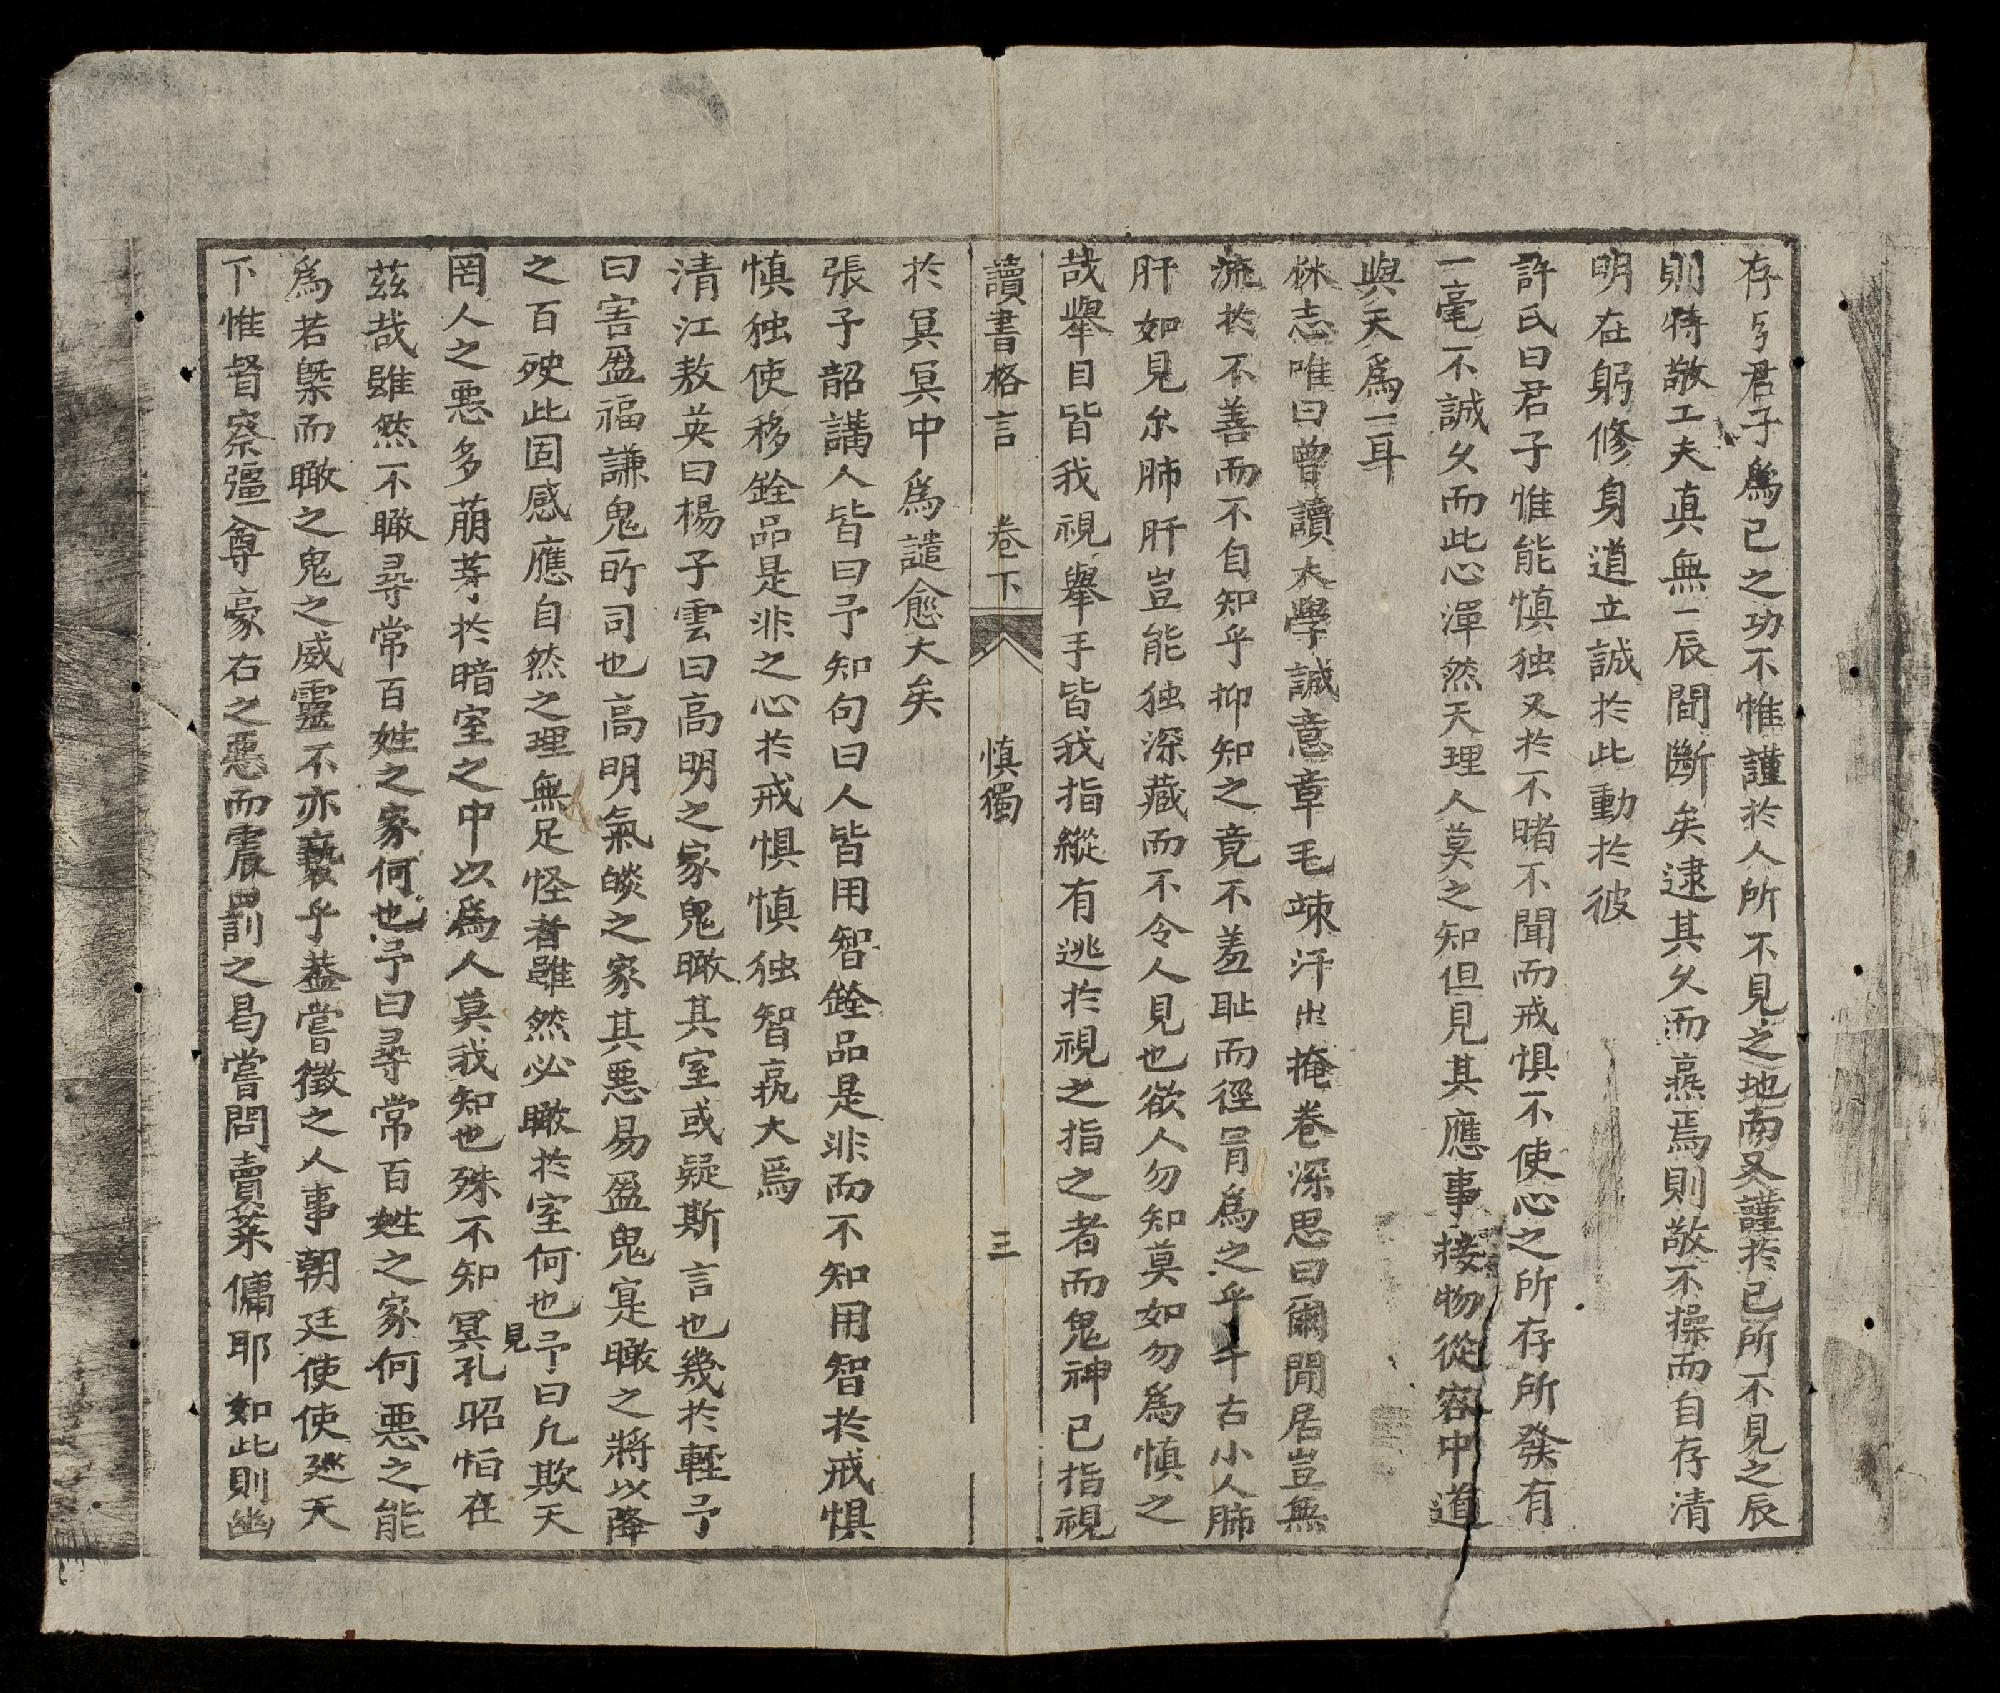 存亐君子爲己之功不惟謹於人所不見之地而又謹於己所不見之辰
則特敬工夫真無一辰間斷矣逮其久而熹焉則敬不操而自存清
明在躬修身道立誠於此動於彼
許氏曰君子惟能慎独又於不睹不聞而戒惧不使心之所存所發有
一毫不誠久而此心渾然天理人莫之知但見其應事接物從容中道
與天爲一耳
林志唯曰曾讀大學誠意章毛竦汗出掩卷深思曰爾閒居豈無
流於不善而不自知乎抑知之竟不羞耻而徑胃爲之乎千古小人肺
肝如見尒肺肝豈能独深藏而不令人見也欲人勿知莫如勿爲慎之
哉舉目皆我視舉手皆我指縱有逃於視之指之者而鬼神已指視
讀書格言 卷下 慎獨 三
於冥冥中爲譴愈大矣
張子韶講人皆曰予知句曰人皆用智銓品是非而不知用智於戒惧
慎独使移銓品是非之心於戒惧慎独智孰大焉
清江敖英曰楊子雲曰高明之家鬼瞰其室或疑斯言也幾於輊予
曰害盈福謙鬼所司也高明氣燄之家其悪易盈鬼寔瞰之將以降
之百殃此固感應自然之理無足怪者雖然必瞰於室何也予曰凡欺天
罔人之悪多萠芽於暗室之中以爲人莫我知也殊不知冥孔昭怕在見
茲哉雖然不瞰尋常百姓之家何也予曰尋常百姓之家何悪之能
爲若槩而瞰之鬼之威靈不亦褻乎蓋嘗徵之人事朝廷使使廵天
下惟督察彊尊豪右之悪而震罰之曷嘗問賣菜傭耶如此則幽